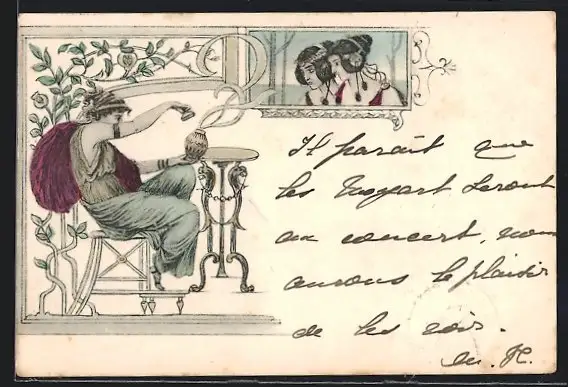 Il parait que
les Noyart seront
au concert, nous
aurons le plaisir
de les voir.
M. H.